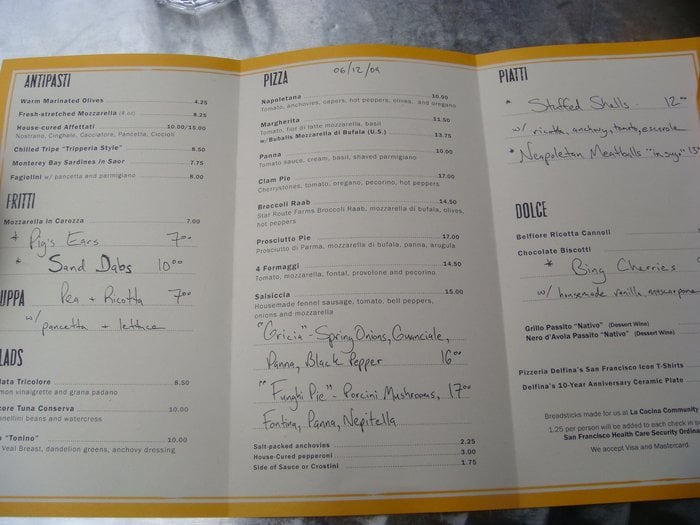 ANTIPASTI
Warm Marinated Olives 4.25
Fresh-stretched Mozzarella (4 oz) 8.25
House-cured Affettati 10.00/15.00
Nostrano, Cinghale, Cacciatore, Pancetta, Ciccioli
Chilled Tripe "Tripperia Style" 8.50
Monterey Bay Sardines in Saor 7.75
Fagiolini w/ pancetta and parmigiano 8.00
FRITTI
Mozzarella in Carozza 7.00
* Pig's Ears 7.00
* Sand Dabs 10.00
UPPA Pea + Ricotta 7.00
w/ pancetta + lettuce
LADS
lata Tricolore 8.50
mon vinaigrette and grana padano
core Tuna Conserva 10.00
nellini beans and watercress
"Tonino" 10.00
Veal Breast, dandelion greens, anchovy dressing
PIZZA 06/12/09
Napoletana 10.00
Tomato, anchovies, capers, hot peppers, olives, and oregano
Margherita 11.50
Tomato, fior di latte mozzarella, basil
w/Bubalis Mozzarella di Bufala (U.S.) 13.75
Panna 10.00
Tomato sauce, cream, basil, shaved parmigiano
Clam Pie 17.00
Cherrystones, tomato, oregano, pecorino, hot peppers
Broccoli Raab 14.50
Star Route Farms Broccoli Raab, mozzarella di bufala, olives,
hot peppers
Prosciutto Pie 17.00
Prosciutto di Parma, mozzarella di bufala, panna, arugula
4 Formaggi 14.50
Tomato, mozzarella, fontal, provolone and pecorino
Salsiccia 15.00
Housemade fennel sausage, tomato, bell peppers,
onions and mozzarella
"Gricia" - Spring Onions, Guanciale,
Panna, Black Pepper 16.00
"Funghi Pie" - Porcini Mushrooms, 17.00
Fontina, Panna, Nepitella
Salt-packed anchovies 2.25
House-Cured pepperoni 3.00
Side of Sauce or Crostini 1.75
PIATTI
* Stuffed Shells 12.00
w/ ricotta, anchovy, tomato, escarole
* Neapolitan Meatballs "in sugo" 13
DOLCE
Belfiore Ricotta Cannoli
Chocolate Biscotti
* Bing Cherries
w/ housemade vanilla mascarpone
Grillo Passito "Nativo" (Dessert Wine)
Nero d'Avola Passito "Nativo" (Dessert Wine)
Pizzeria Delfina's San Francisco Icon T-Shirts
Delfina's 10-Year Anniversary Ceramic Plate
Breadsticks made for us at La Cocina Community
1.25 per person will be added to each check in su
San Francisco Health Care Security Ordina
We accept Visa and Mastercard.